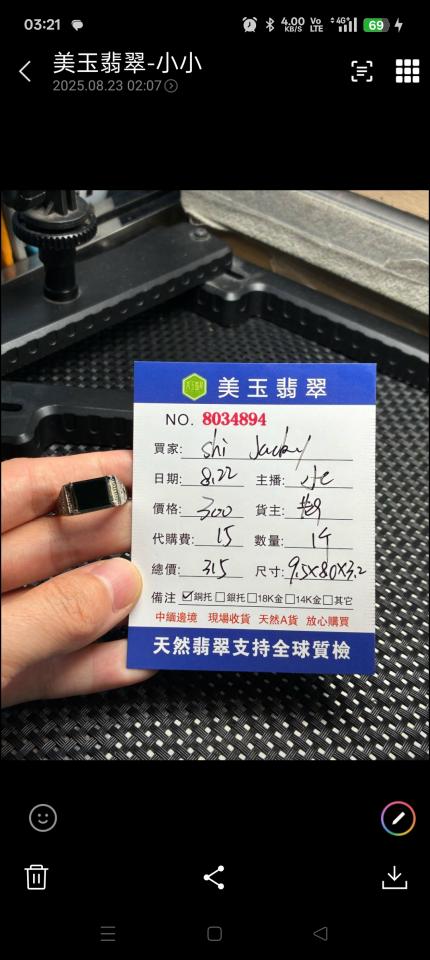 03:21 4.00 KB/S Vo LTE 4G+ 69
美玉翡翠-小小
2025.08.23 02:07
美玉翡翠
NO. 8034894
買家: Shi Jacky
日期: 8.22 主播: 小七
價格: 300 貨主:
代購費: 15 數量: 1个
總價: 315 尺寸: 9.5X8.0X3.2
備注 銅托 銀托 18K金 14K金 其它
中缅邊境 現場收貨 天然A貨 放心購買
天然翡翠支持全球質檢